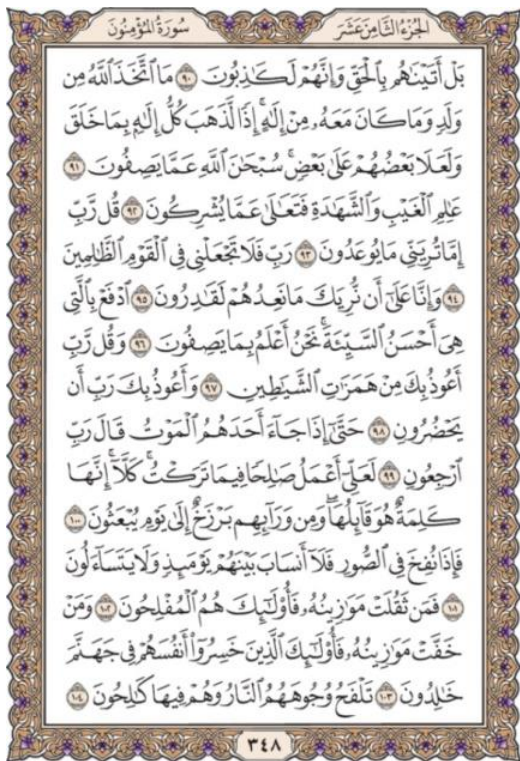 الجزء الثامن عشر
سورة المؤمنون
بَلْ أَتَيْنَٰهُم بِٱلْحَقِّ وَإِنَّهُمْ لَكَٰذِبُونَ ٩٠ مَا ٱتَّخَذَ ٱللَّهُ مِن
وَلَدٍ وَمَا كَانَ مَعَهُۥ مِنْ إِلَٰهٍ ۚ إِذًا لَّذَهَبَ كُلُّ إِلَٰهٍۭ بِمَا خَلَقَ
وَلَعَلَا بَعْضُهُمْ عَلَىٰ بَعْضٍ ۚ سُبْحَٰنَ ٱللَّهِ عَمَّا يَصِفُونَ ٩١
عَٰلِمِ ٱلْغَيْبِ وَٱلشَّهَٰدَةِ فَتَعَٰلَىٰ عَمَّا يُشْرِكُونَ ٩٢ قُل رَّبِّ
إِمَّا تُرِيَنِّي مَا يُوعَدُونَ ٩٣ رَبِّ فَلَا تَجْعَلْنِي فِي ٱلْقَوْمِ ٱلظَّٰلِمِينَ
٩٤ وَإِنَّا عَلَىٰٓ أَن نُّرِيَكَ مَا نَعِدُهُمْ لَقَٰدِرُونَ ٩٥ ٱدْفَعْ بِٱلَّتِي
هِيَ أَحْسَنُ ٱلسَّيِّئَةَ ۚ نَحْنُ أَعْلَمُ بِمَا يَصِفُونَ ٩٦ وَقُل رَّبِّ
أَعُوذُ بِكَ مِنْ هَمَزَٰتِ ٱلشَّيَٰطِينِ ٩٧ وَأَعُوذُ بِكَ رَبِّ أَن
يَحْضُرُونِ ٩٨ حَتَّىٰٓ إِذَا جَآءَ أَحَدَهُمُ ٱلْمَوْتُ قَالَ رَبِّ
ٱرْجِعُونِ ٩٩ لَعَلِّيٓ أَعْمَلُ صَٰلِحًا فِيمَا تَرَكْتُ ۚ كَلَّآ ۚ إِنَّهَا
كَلِمَةٌ هُوَ قَآئِلُهَا ۖ وَمِن وَرَآئِهِم بَرْزَخٌ إِلَىٰ يَوْمِ يُبْعَثُونَ ١٠٠
فَإِذَا نُفِخَ فِي ٱلصُّورِ فَلَآ أَنسَابَ بَيْنَهُمْ يَوْمَئِذٍ وَلَا يَتَسَآءَلُونَ
١٠١ فَمَن ثَقُلَتْ مَوَٰزِينُهُۥ فَأُو۟لَٰٓئِكَ هُمُ ٱلْمُفْلِحُونَ ١٠٢ وَمَنْ
خَفَّتْ مَوَٰزِينُهُۥ فَأُو۟لَٰٓئِكَ ٱلَّذِينَ خَسِرُوٓا۟ أَنفُسَهُمْ فِي جَهَنَّمَ
خَٰلِدُونَ ١٠٣ تَلْفَحُ وُجُوهَهُمُ ٱلنَّارُ وَهُمْ فِيهَا كَٰلِحُونَ ١٠٤
٣٤٨